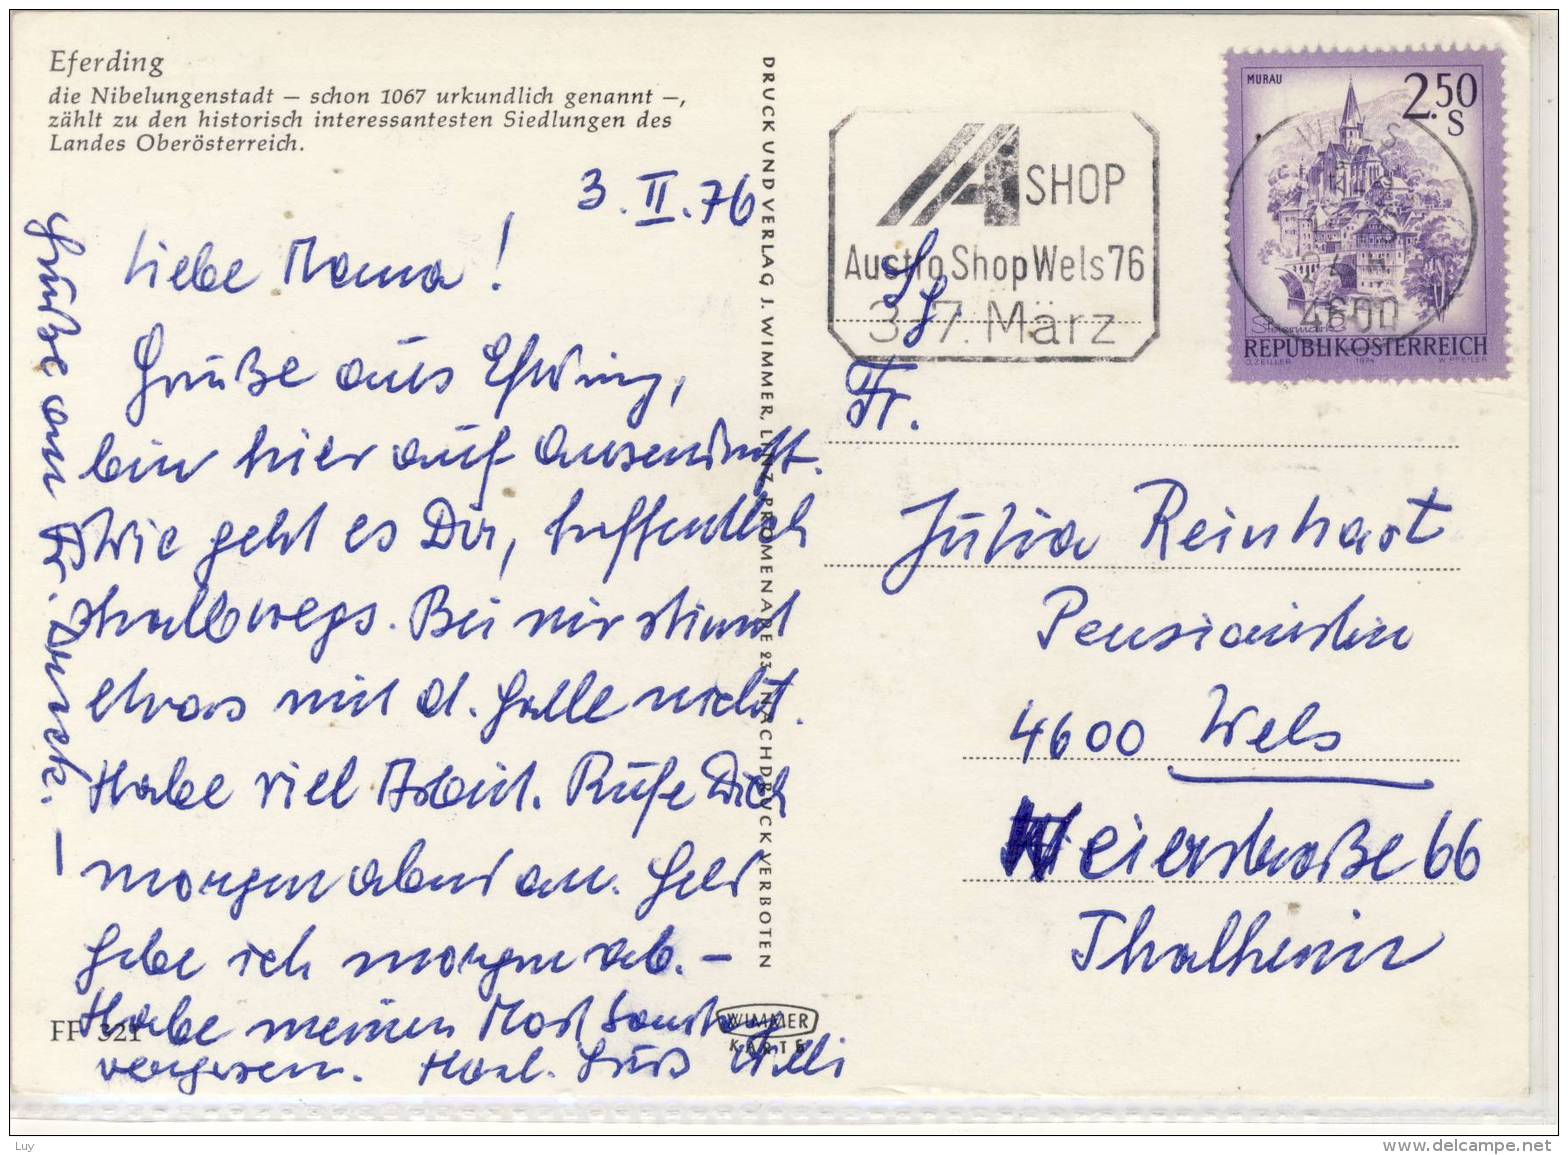 Eferding
die Nibelungenstadt – schon 1067 urkundlich genannt –,
zählt zu den historisch interessantesten Siedlungen des
Landes Oberösterreich.
3. II. 76
Liebe Mama!
Grüße aus Eferding,
bin hier auf Aussendienst.
Wie geht es Dir, hoffentlich
halbwegs. Bei mir stimmt
etwas mit d. Galle nicht.
Habe viel Arbeit. Rufe Dich
morgen abend an. Geld
hebe ich morgen ab. –
Habe meinen Most Samstag
vergessen. Herzl. Gruß Willi
Grüße an
DRUCK UND VERLAG J. WIMMER, LINZ, PROMENADE 23. NACHDRUCK VERBOTEN
FF 321
WIMMER
KARTE
A SHOP
Austro Shop Wels 76
3.-7. März
MURAU
2.50
S
WELS
4600
Steiermark
REPUBLIK ÖSTERREICH
O. ZEILLER 1974 W. PFEILER
Fr.
Julia Reinhart
Pensionistin
4600 Wels
Weierstraße 66
Thalheim
Luy
www.delcampe.net